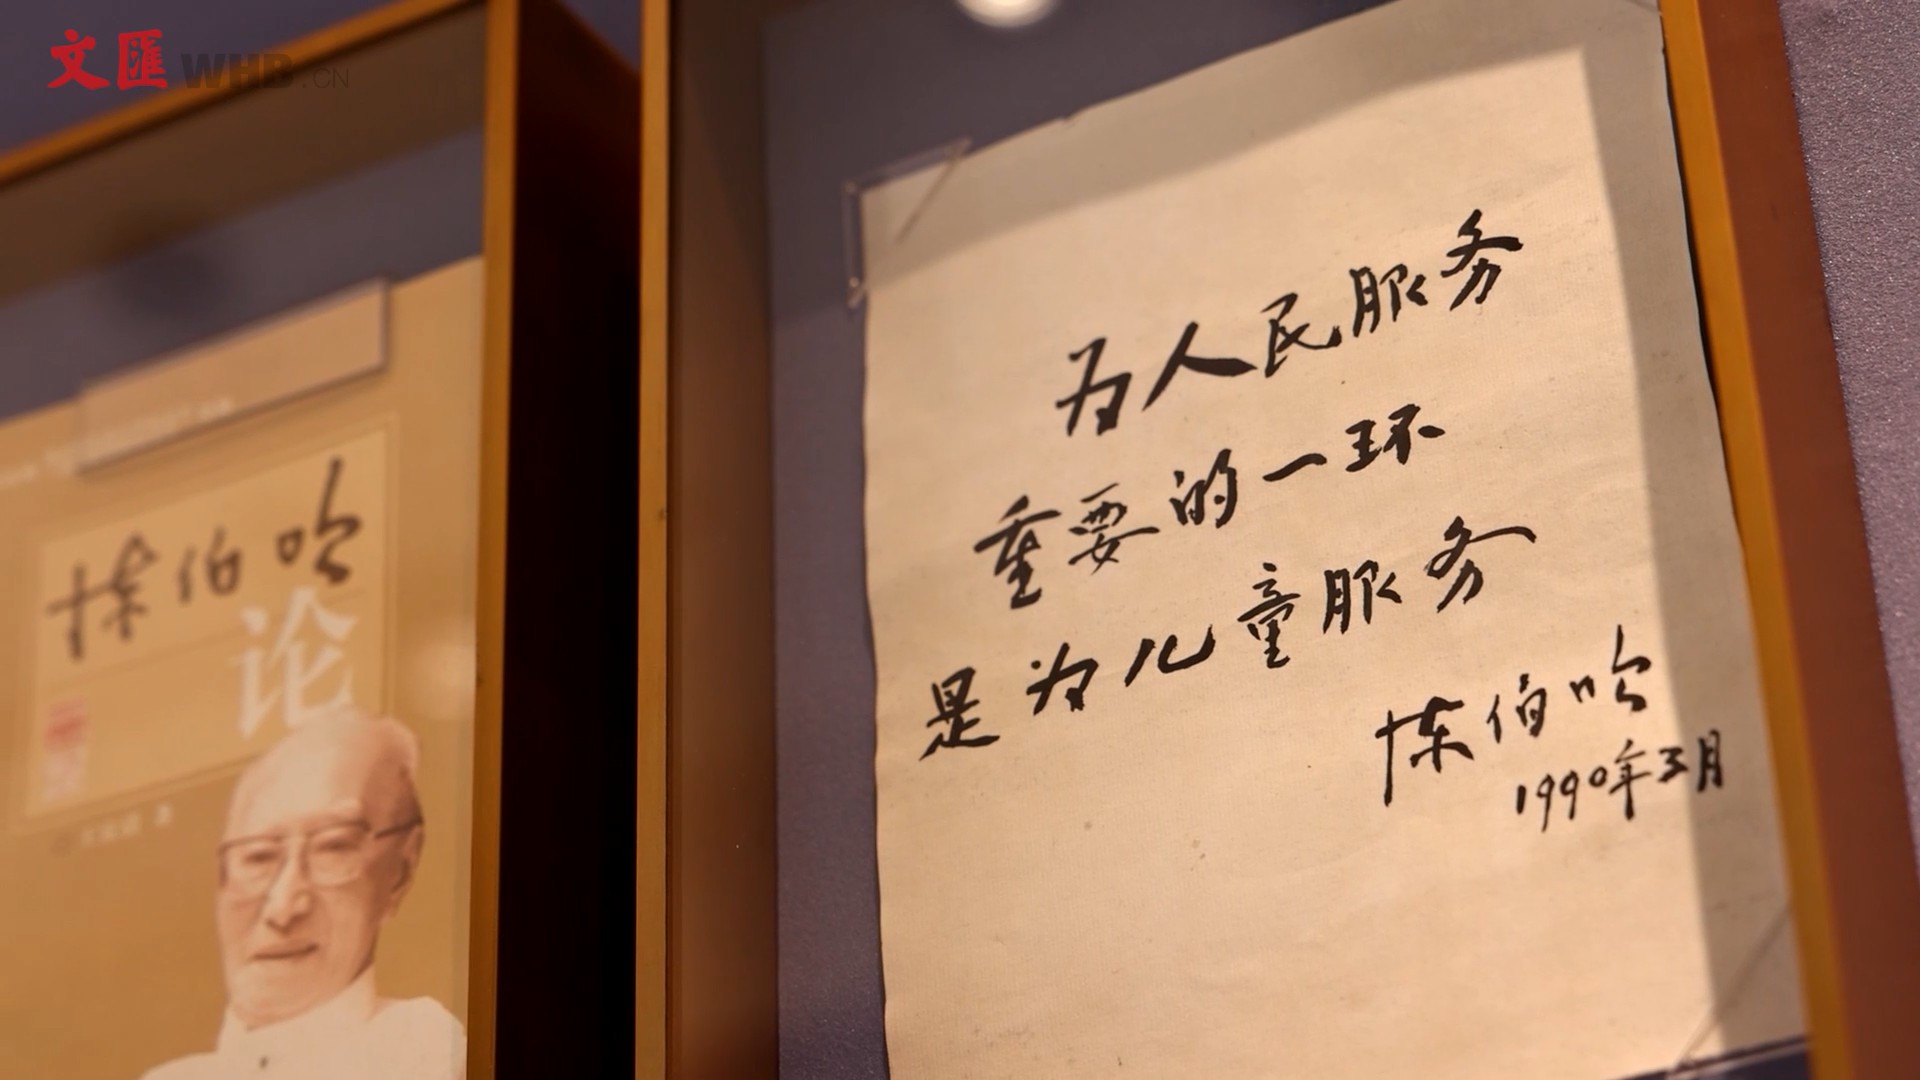 文匯 WHB.CN
陈伯吹
论
为人民服务
重要的一环
是为儿童服务
陈伯吹
1990年三月